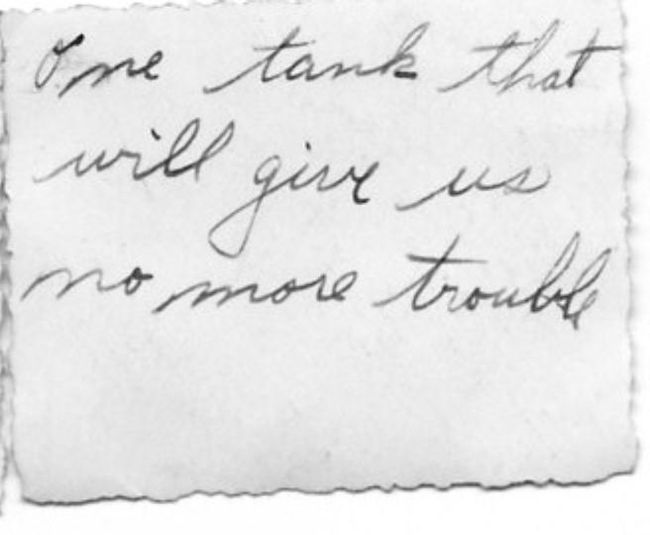 One tank that
will give us
no more trouble